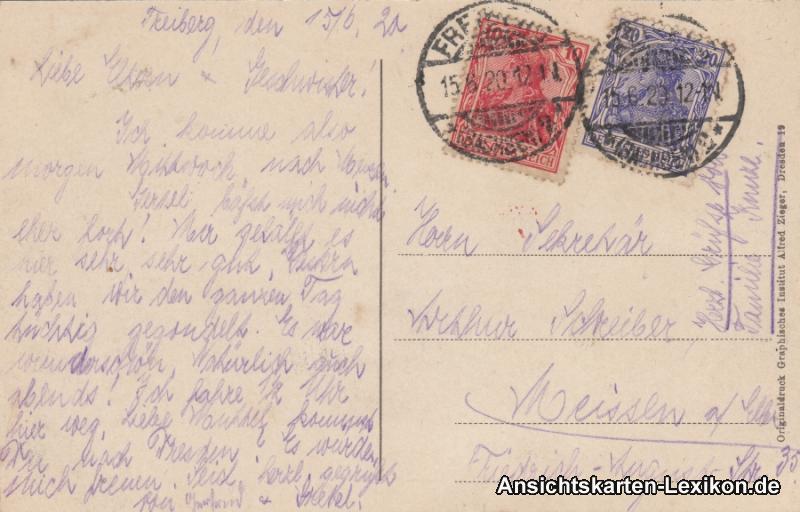 Freiberg, den 15/6, 20
Liebe Eltern & Geschwister!
Ich komme also
morgen Mittwoch nach
läßt mich nicht
eher fort! Mir gefällt es
hier sehr, sehr gut, Gestern
haben wir den ganzen Tag
tüchtig gegondelt. Es war
wunderschön, Natürlich auch
abends! Ich fahre 1/2 Uhr
hier weg, Liebe Mutter, kommst
Du nach Dresden. Es würde
mich freuen. Seid herzl. gegrüßt
von &
FREIBERG
15.6.20.12-1N
(SACHSEN)
10 10
REICH
20 20
15.6.20.12-1N
Herrn Sekretär
Arthur Schreiber,
Meissen a/ Elbe
Friedrich-August Str. 35
Herzl. Grüße
Familie
Originaldruck Graphisches Institut Alfred Zieger, Dresden 19
Ansichtskarten-Lexikon.de